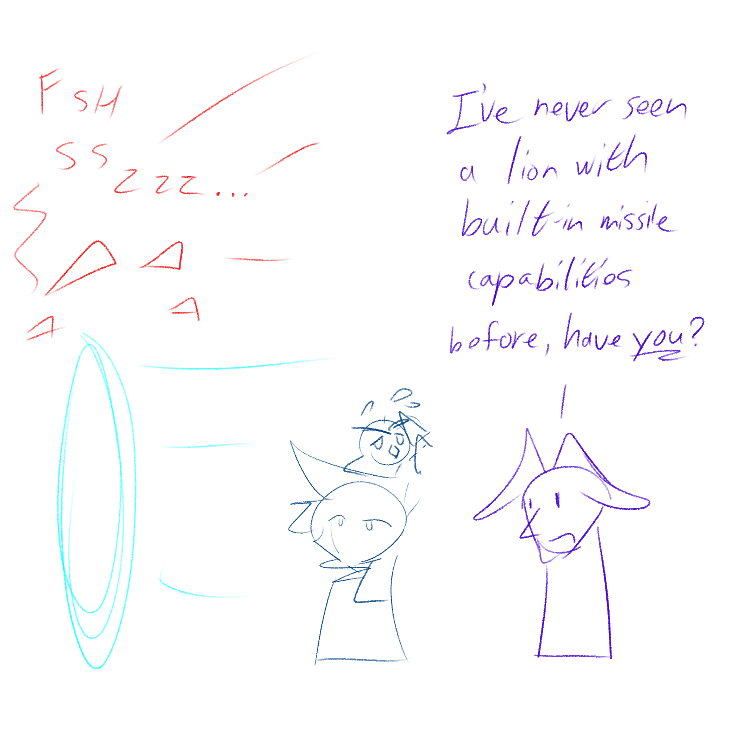 FSH
SS
ZZZ...
I've never seen
a lion with
built-in missile
capabilities
before, have you?